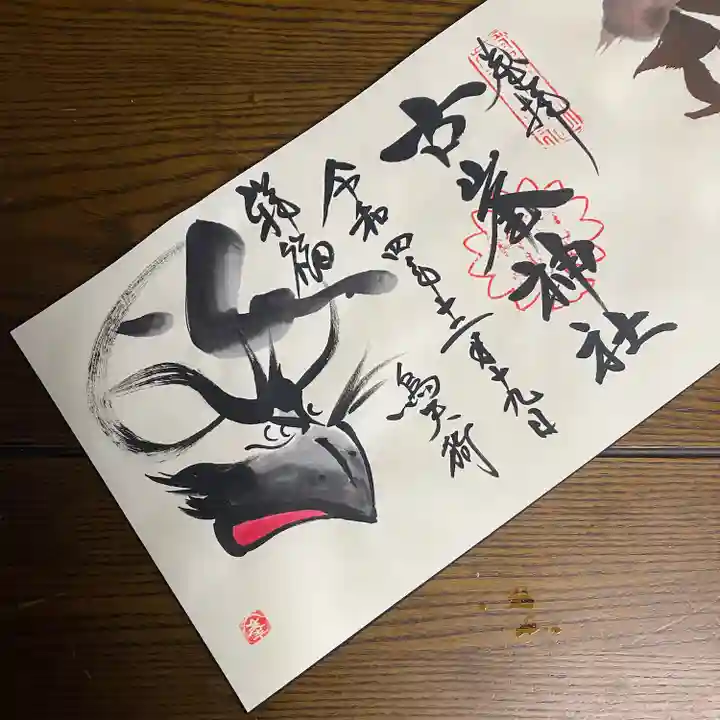 奉拝
古峯神社
令和四年十二月十九日
烏天狗
祥福